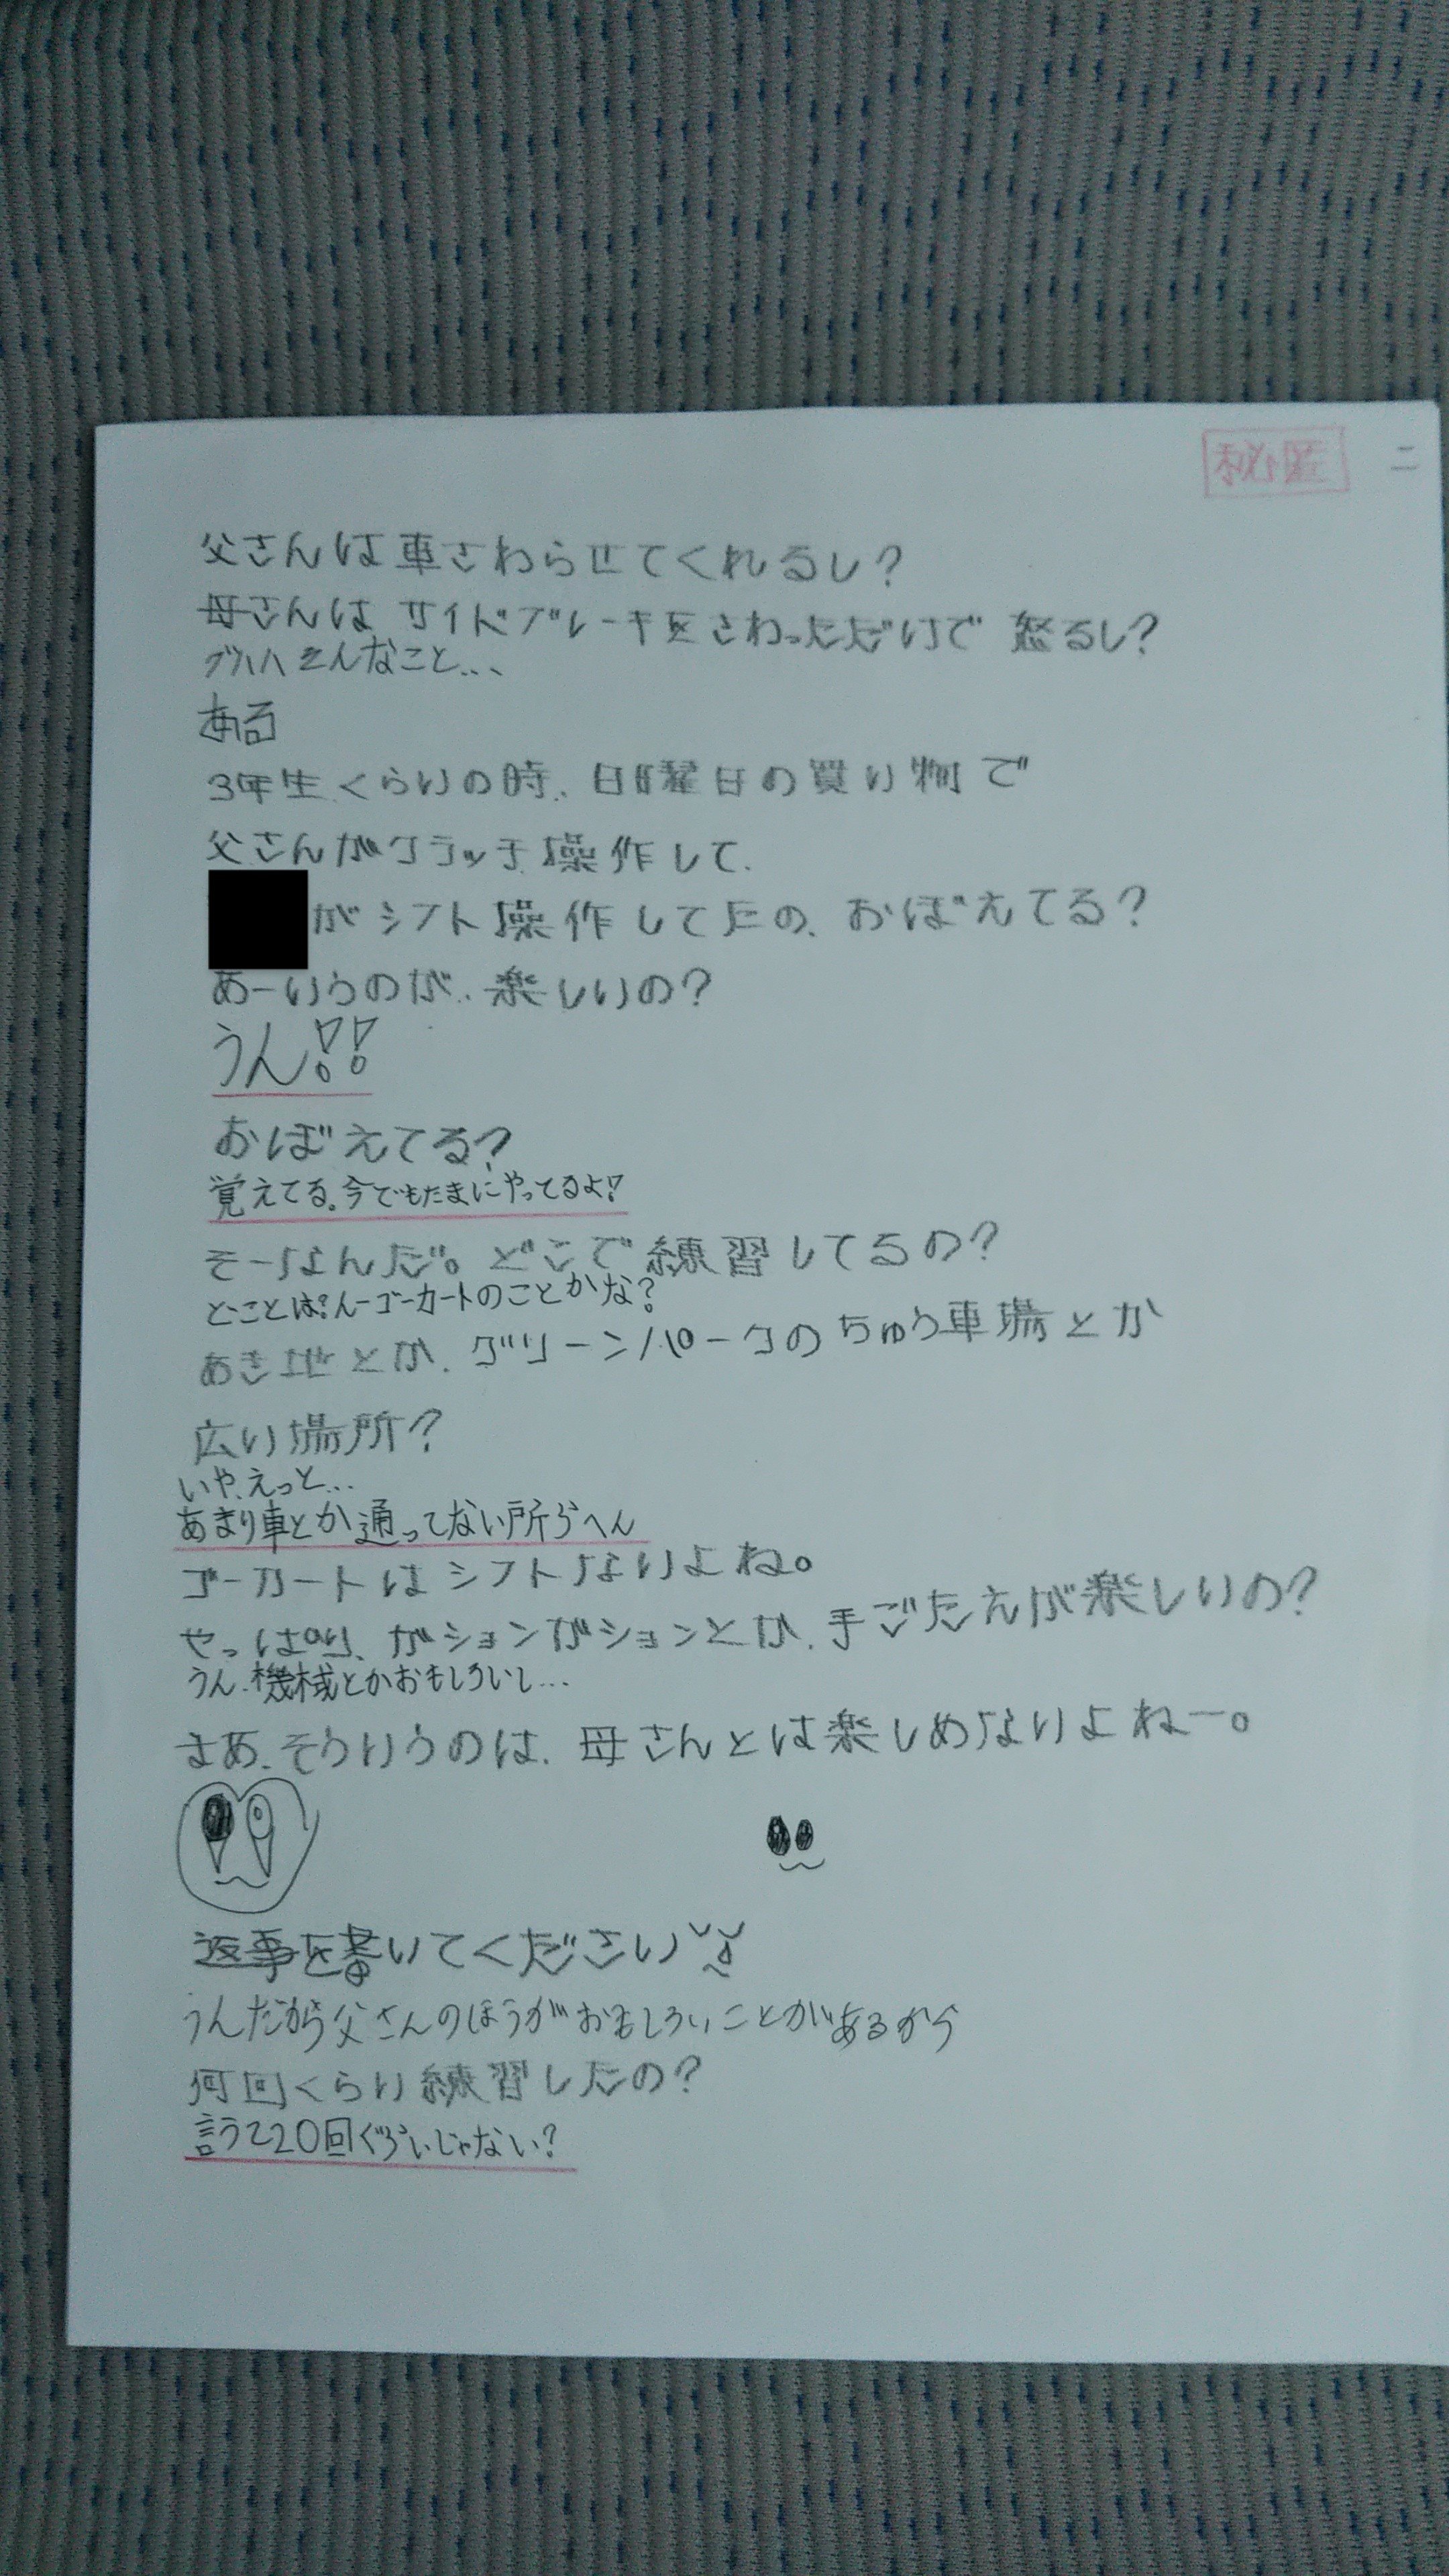 秘匿 二
父さんは車さわらせてくれるし?
母さんは サイドブレーキをさわっただけで 怒るし?
ブハハ そんなこと...
ある
3年生くらいの時、日曜日の買い物で
父さんがクラッチ操作して、
がシフト操作してたの、おぼえてる?
あーいうのが、楽しいの?
うん!!
おぼえてる?
覚えてる。今でもたまにやってるよ!
そーなんだ。どこで練習してるの?
ゴーカートのことかな?
あき地とか、グリーンパークのちゅう車場とか
広い場所?
いや、えっと...
あまり車とか通ってない所らへん
ゴーカートはシフトないよね。
やっぱり、ガションガションとか、手ごたえが楽しいの?
うん、機械とかおもしろいし...
まあ、そういうのは、母さんとは楽しめないよねー。
返事を書いてください
うんだから父さんのほうがおもしろいことがあるから
何回くらい練習したの?
言うて20回ぐらいじゃない?